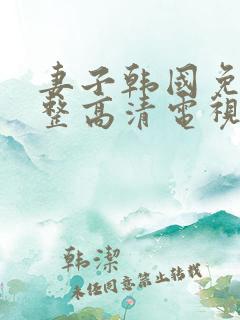 妻子韩國免
整高清電視
韩潔
未任同意禁止转载